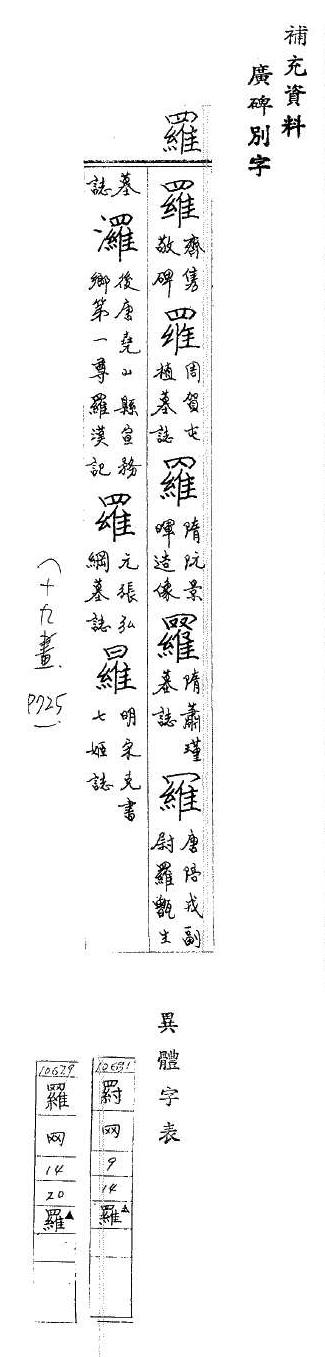 補充資料
廣碑別字
羅
羅 齊雋敬碑 羅 周賀屯植墓誌 羅 隋阮景暉造像 羅 隋蕭瑾墓誌 羅 唐陪戎副尉羅甑生
墓誌 灑 後唐堯山縣宣務鄉第一尊羅漢記 羅 元張弘綱墓誌 羅 明宋克書七姬誌
(十九畫. P725)
異體字表
网
9
14
羅▲
10679
羅
网
14
20
羅▲